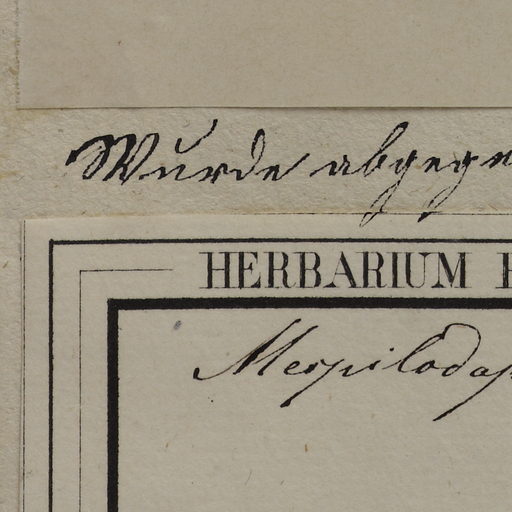 Wurde abgege
HERBARIUM
Mespilodap